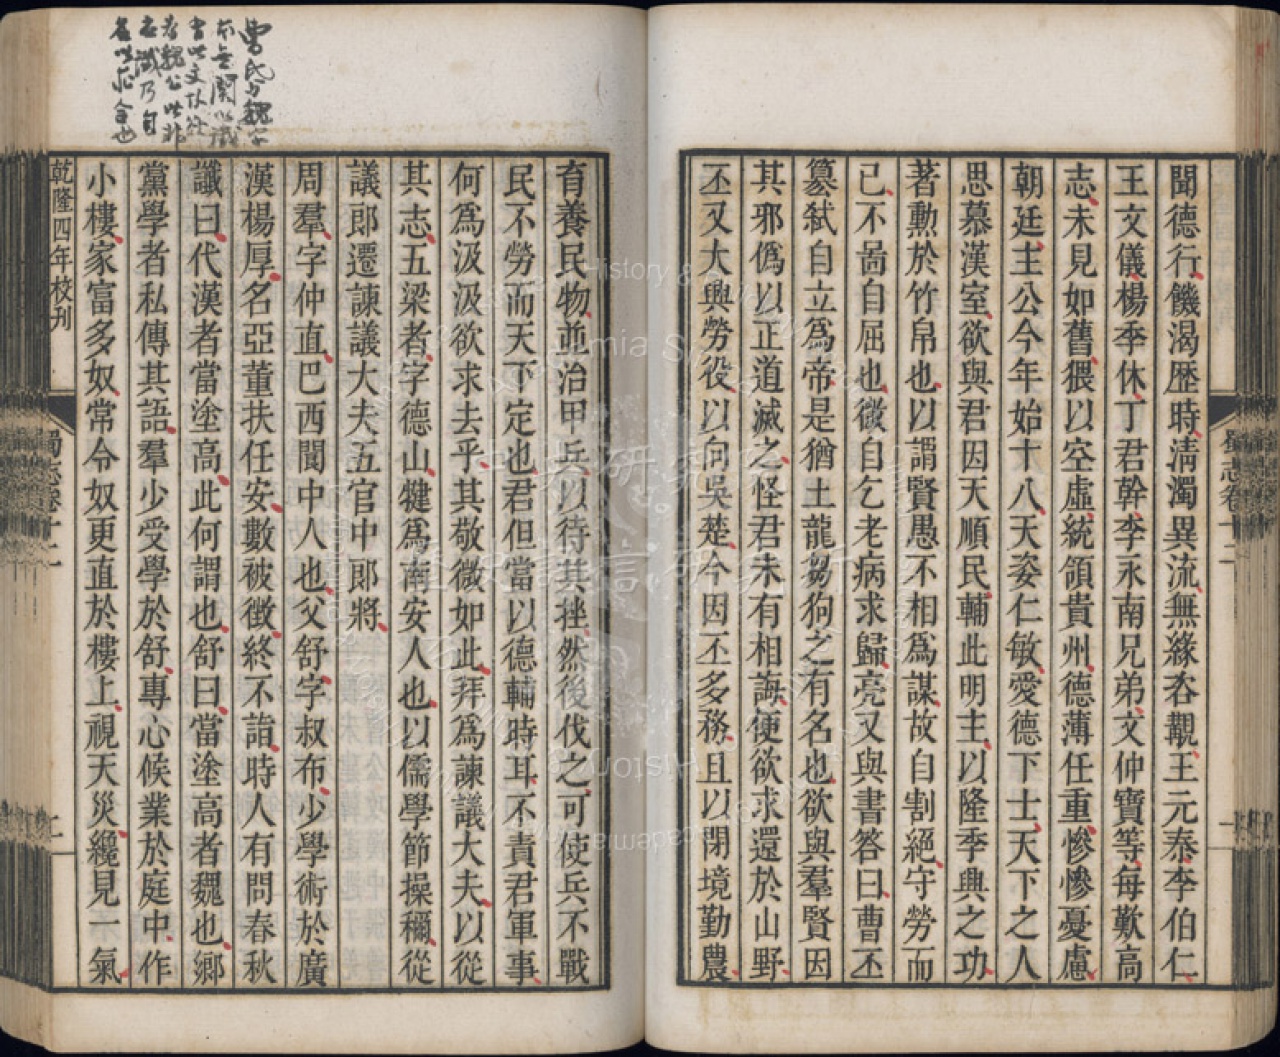 聞德行饑渴歷時清濁異流無緣咨覯王元泰李伯仁
王文儀楊季休丁君幹李永南兄弟文仲寶等每歎高
志未見如舊猥以空虛統領貴州德薄任重慘慘憂慮
朝廷主公今年始十八天姿仁敏愛德下士天下之人
思慕漢室欲與君因天順民輔此明主以隆季興之功
著勳於竹帛也以謂賢愚不相爲謀故自割絕守勞而
已不啚自屈也微自乞老病求歸亮又與書答曰曹丕
篡弒自立爲帝是猶土龍芻狗之有名也欲與羣賢因
其邪僞以正道滅之怪君未有相誨便欲求還於山野
丕又大興勞役以向吳楚今因丕多務且以閉境勤農
蜀志卷十二
育養民物並治甲兵以待其挫然後伐之可使兵不戰
民不勞而天下定也君但當以德輔時耳不責君軍事
何爲汲汲欲求去乎其敬微如此拜爲諫議大夫以從
其志五梁者字德山犍爲南安人也以儒學節操稱從
議郎遷諫議大夫五官中郎將
周羣字仲直巴西閬中人也父舒字叔布少學術於廣
漢楊厚名亞董扶任安數被徵終不詣時人有問春秋
讖曰代漢者當塗高此何謂也舒曰當塗高者魏也鄉
黨學者私傳其語羣少受學於舒專心候業於庭中作
小樓家富多奴常令奴更直於樓上視天災纔見一氣
乾隆四年校刊
蜀志卷十二